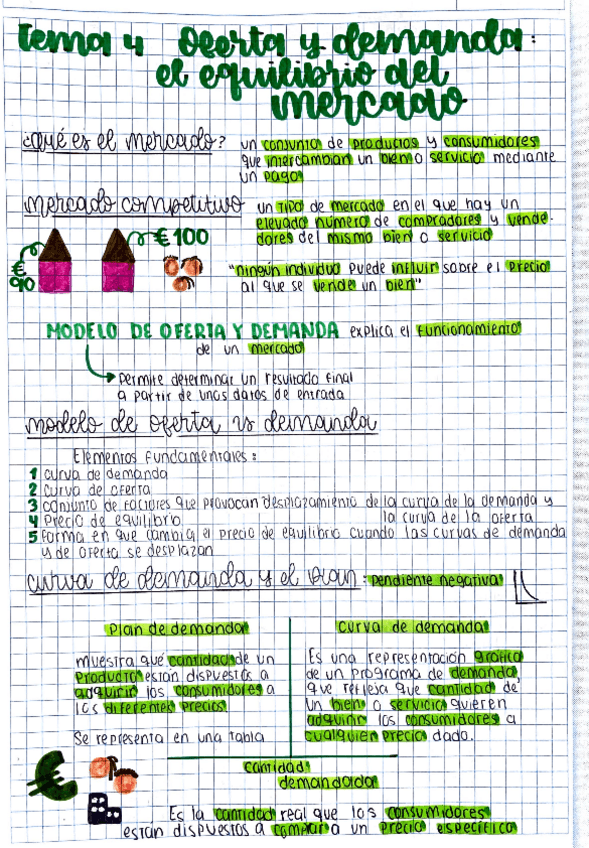 Tema 4 Oferta y demanda:
el equilibrio del
mercado
¿qué es el mercado?
un conjunto de productos y consumidores
que intercambian un bien o servicio mediante
un pago
mercado competitivo
un tipo de mercado en el que hay un
elevado número de compradores y vende-
dores del mismo bien o servicio
€100
€
90
"ningún individuo puede influir sobre el precio
al que se vende un bien"
MODELO DE OFERTA Y DEMANDA explica el funcionamiento
de un mercado
Permite determinar un resultado final
a partir de unos datos de entrada
modelo de oferta vs demanda
Elementos fundamentales:
1 curva de demanda
2 curva de oferta
3 conjunto de factores que provocan desplazamiento de la curva de la demanda y
la curva de la oferta
4 Precio de equilibrio
5 Forma en que cambia el precio de equilibrio cuando las curvas de demanda
y de oferta se desplazan
curva de demanda y el plan: pendiente negativa
Plan de demanda
muestra qué cantidad de un
producto están dispuestos a
adquirir los consumidores a
los diferentes precios
Se representa en una tabla
curva de demanda
Es una representación gráfica
de un programa de demanda
que refleja que cantidad de
un bien o servicio quieren
adquirir los consumidores a
cualquier precio dado.
€
cantidad
demandada
Es la cantidad real que los consumidores
están dispuestos a comprar a un precio específico